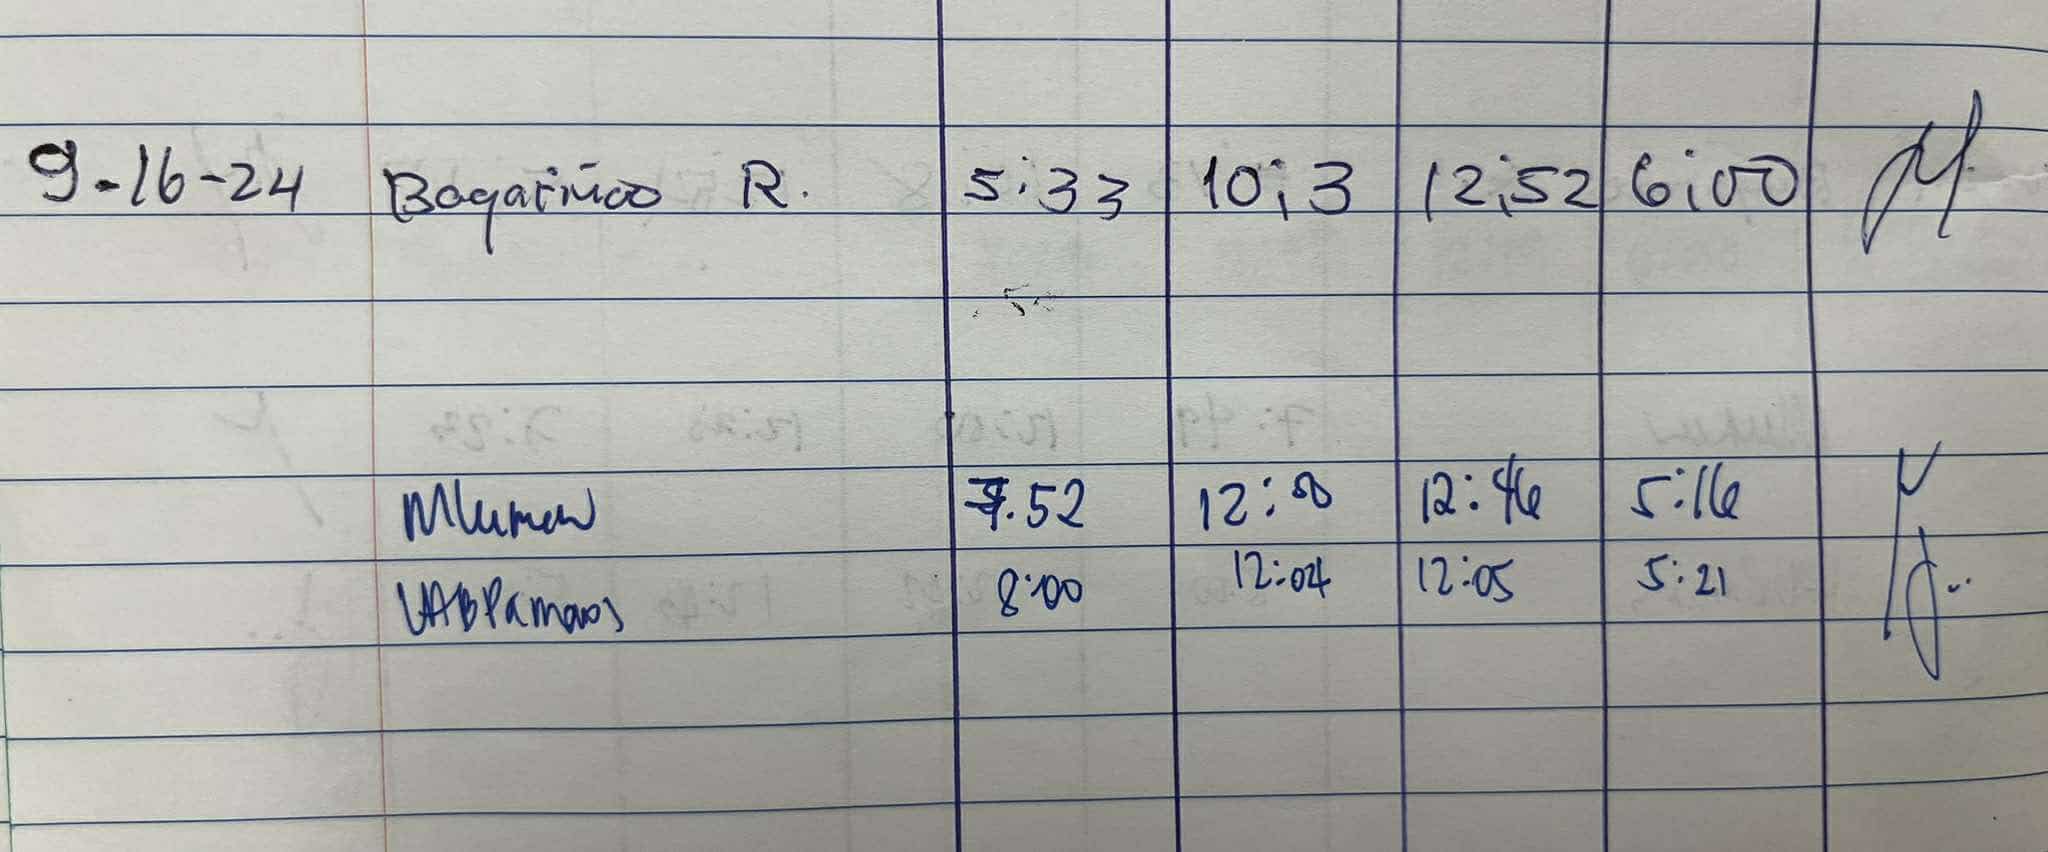 9-16-24 Bagatnoo R. 5:33 10;3 12;52 6:00
7.52 12:00 12:46 5:16
VABPamaos 8:00 12:04 12:05 5:21